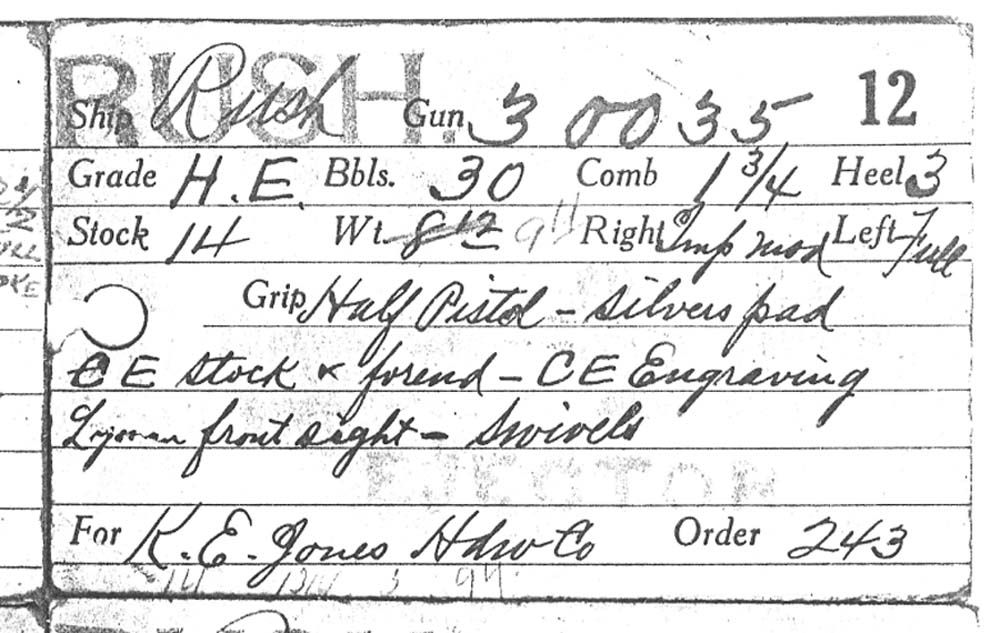 RUSH.
Ship Rush Gun 3 0035 12
Grade H.E. Bbls. 30 Comb 1 3/4 Heel 3
Stock 14 Wt 8 12 9 4 Right Imp mod Left Full
Grip Half Pistol - silvers pad
CE stock & forend - CE Engraving
Lyman front sight - swivels
EJECTOR
For K. E. Jones Hdw Co Order 243